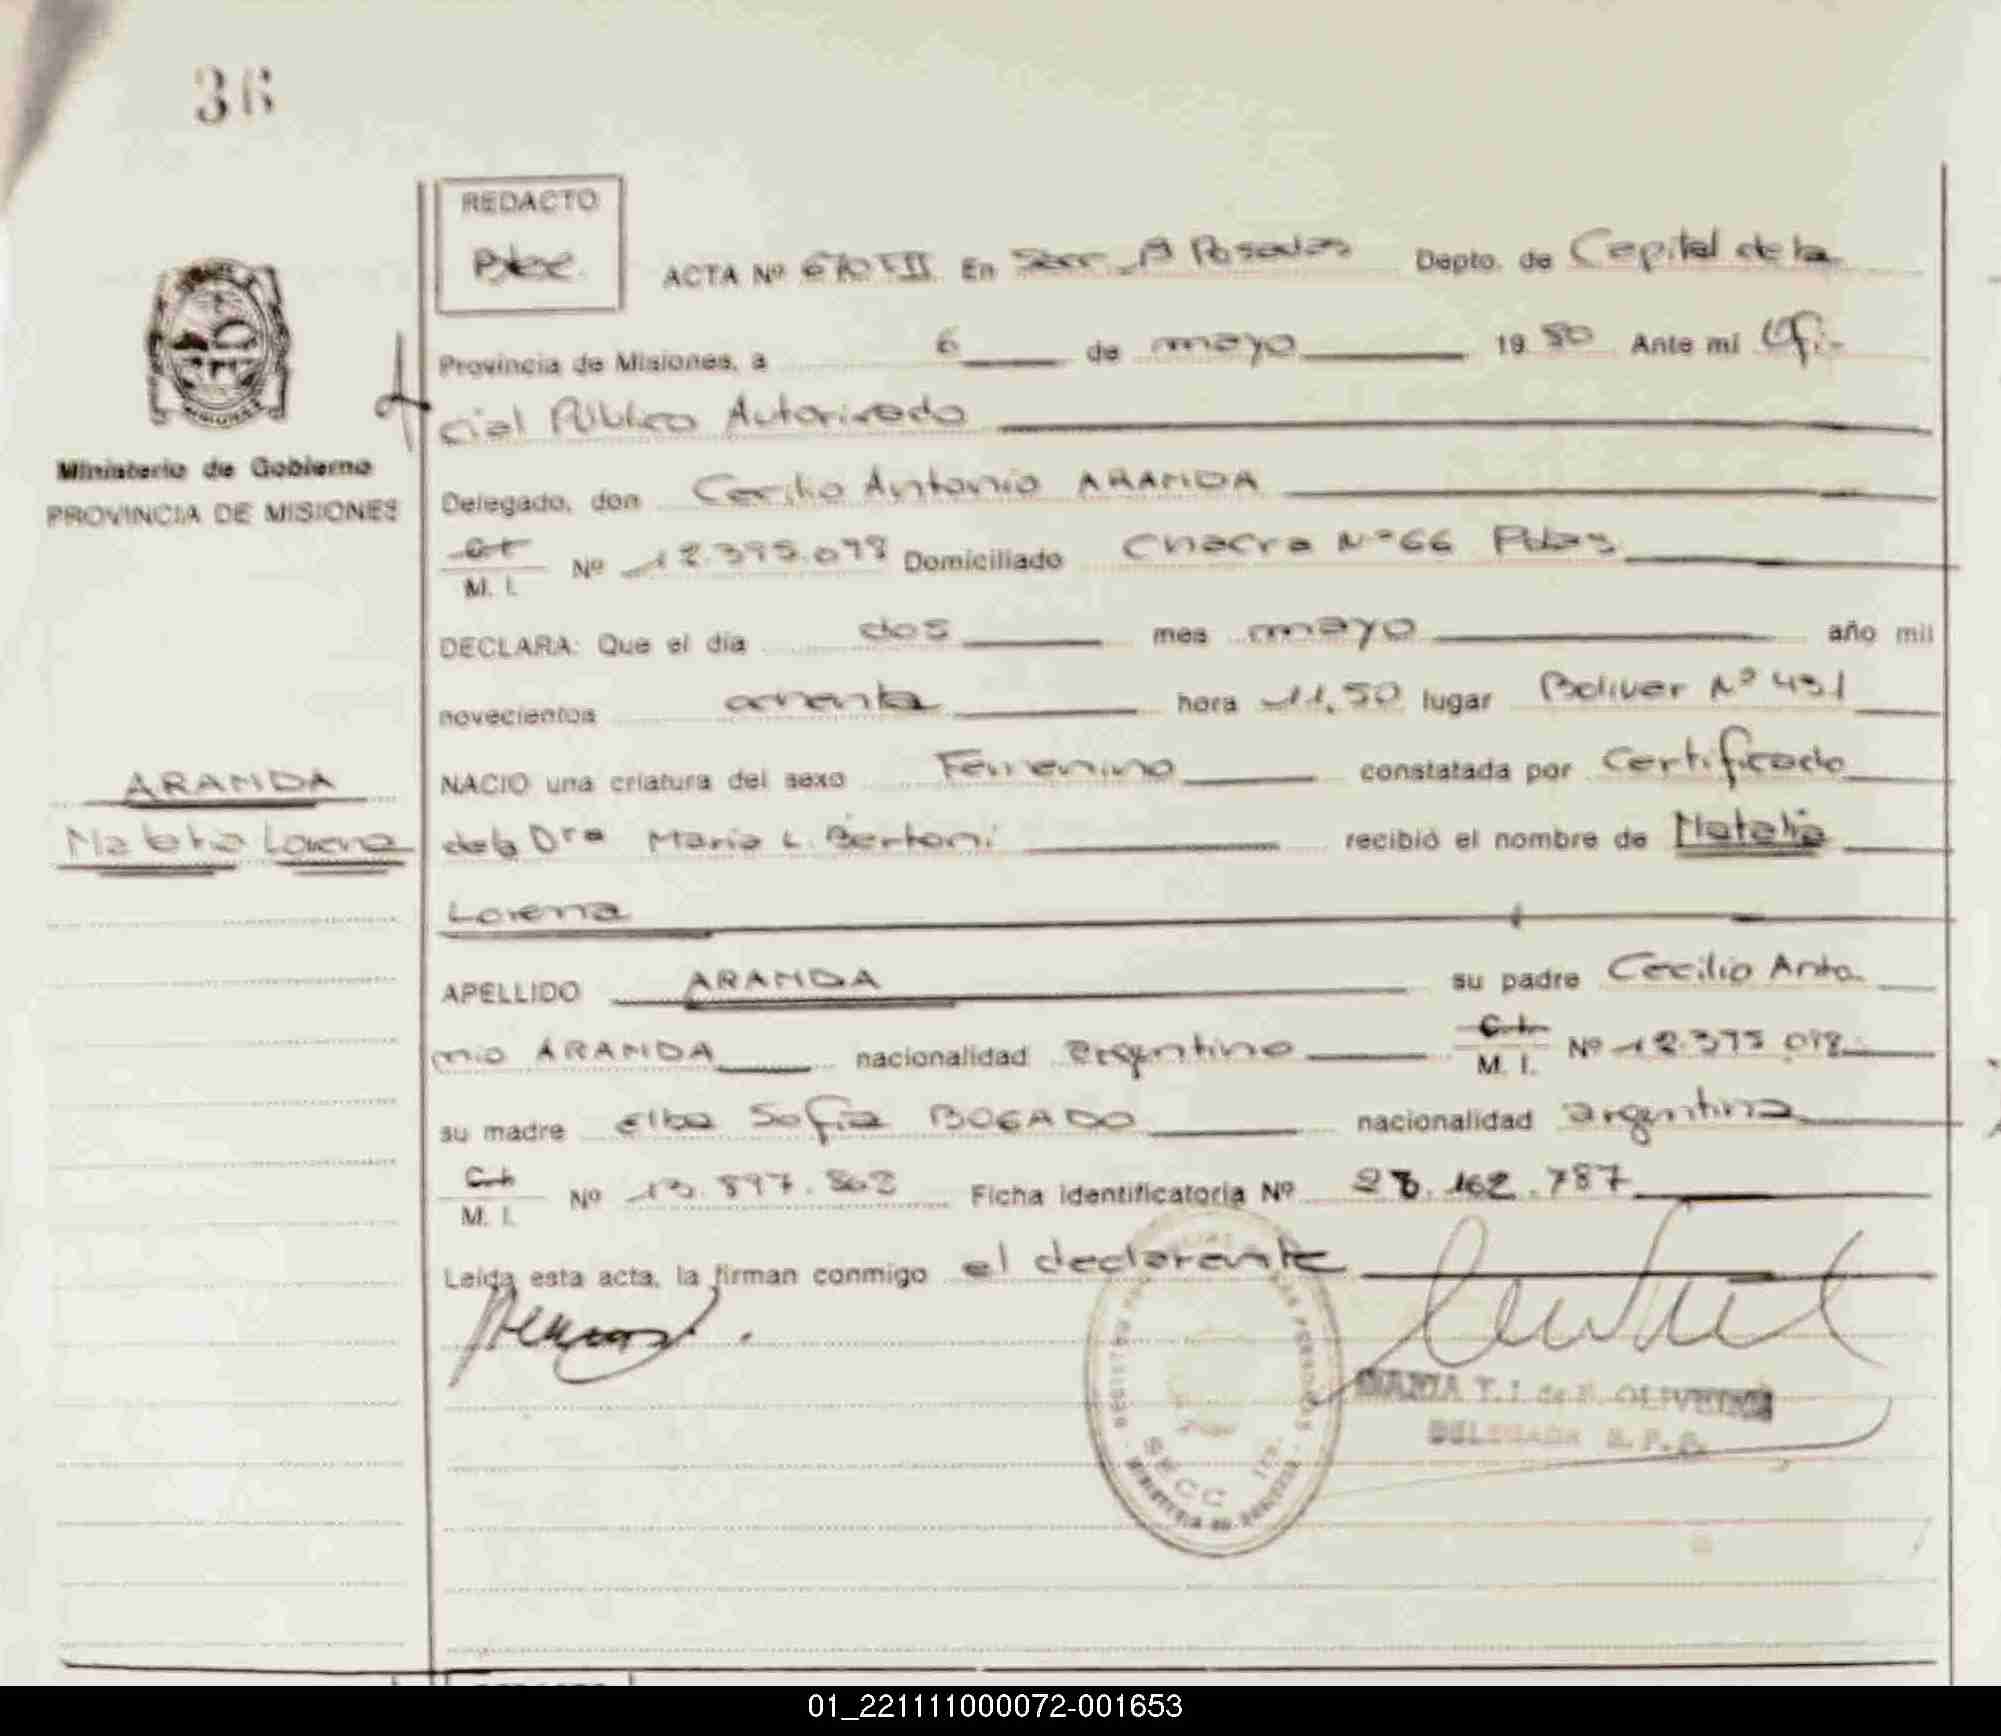 36
REDACTO
ACTA Nº En Secc. Posadas Depto. de Capital de la
Provincia de Misiones, a 6 de mayo 19 80 Ante mi Ofi-
cial Público Autorizado
Ministerio de Gobierno
PROVINCIA DE MISIONES
Delegado, don Cecilio Antonio ARANDA
C.I.
M. I. Nº 12.395.098 Domiciliado Chacra Nº 66 Pdas
DECLARA: Que el día dos mes mayo año mil
novecientos ochenta hora 11,50 lugar Bolivar Nº 431
NACIO una criatura del sexo Femenino constatada por Certificado
ARANDA
Natalia Lorena
de la Dra Maria L. Bertoni recibió el nombre de Natalia
Lorena
APELLIDO ARANDA su padre Cecilio Anto
nio ARANDA nacionalidad argentino C.I.
M. I. Nº 12.395.098
su madre Elba Sofia BOGADO nacionalidad argentina
C.I.
M. I. Nº 13.897.862 Ficha identificatoria Nº 28.162.787
Leída esta acta, la firman conmigo el declarante
MARIA T. J. de F. OLIVEIRA
DELEGADA R. P. P.
SECC 1ra.
01_221111000072-001653